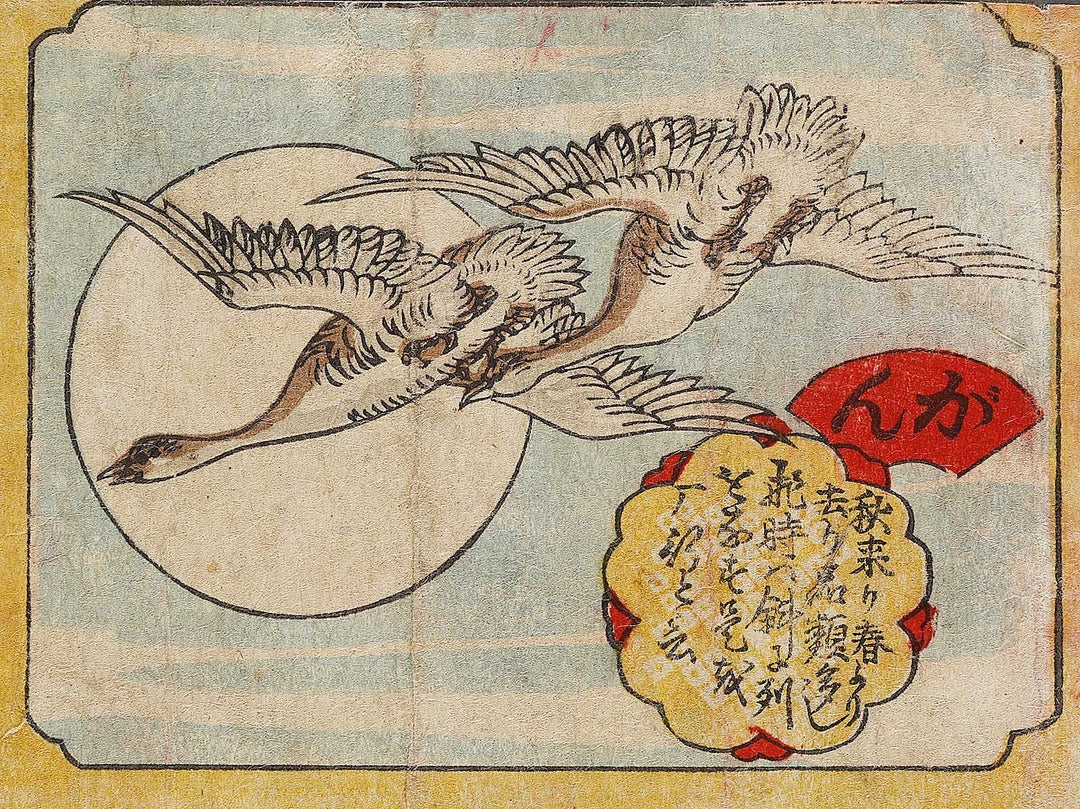 がん
秋来り春より
去り名類多し
飛時ハ斜に列
をなす是を
と云